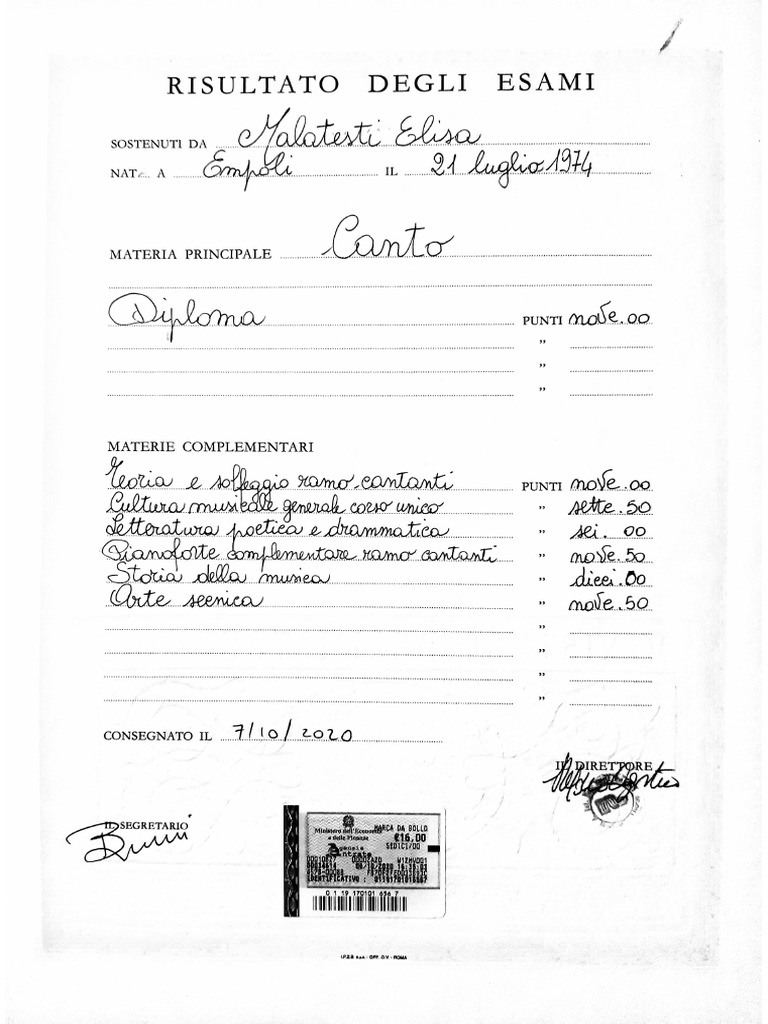 RISULTATO DEGLI ESAMI
SOSTENUTI DA Malatesti Elisa
NAT A Empoli IL 21 luglio 1974
MATERIA PRINCIPALE Canto
Diploma PUNTI nove.00
"
"
"
MATERIE COMPLEMENTARI
Teoria e solfeggio ramo cantanti PUNTI nove.00
Cultura musicale generale corso unico " sette.50
Letteratura poetica e drammatica " sei.00
Pianoforte complementare ramo cantanti " nove.50
Storia della musica " dieci.00
Arte scenica " nove.50
"
"
"
"
CONSEGNATO IL 7/10/2020
IL DIRETTORE
IL SEGRETARIO
Ministero dell'Economia e delle Finanze
MARCA DA BOLLO
€16,00
SEDICI/00
Agenzia Entrate
IDENTIFICATIVO :
0 1 19 170101 656 7
I.P.Z.S. S.p.A. - OFF. C.V. - ROMA